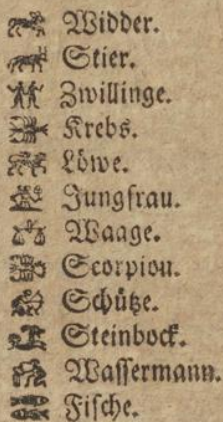 Widder.
Stier.
Zwillinge.
Krebs.
Löwe.
Jungfrau.
Waage.
Scorpion.
Schütze.
Steinbock.
Wassermann.
Fische.